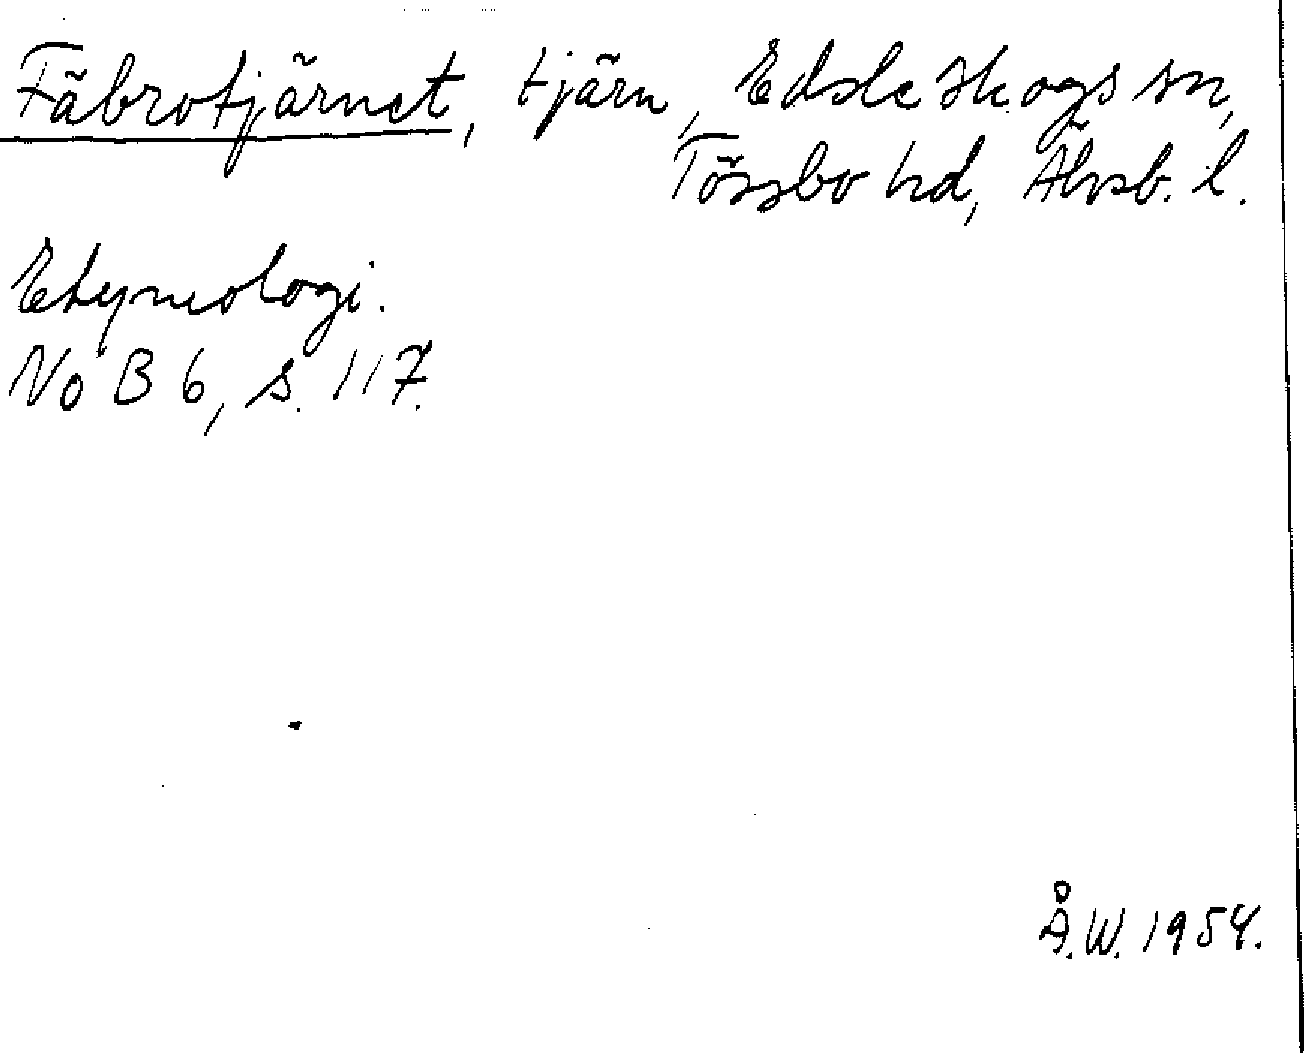 Fäbrotjärnet, tjärn, Edsleskogs sn,
Tössbo hd, Älvsb. l.
Etymologi.
NoB 6, s. 117.
Å.W. 1954.